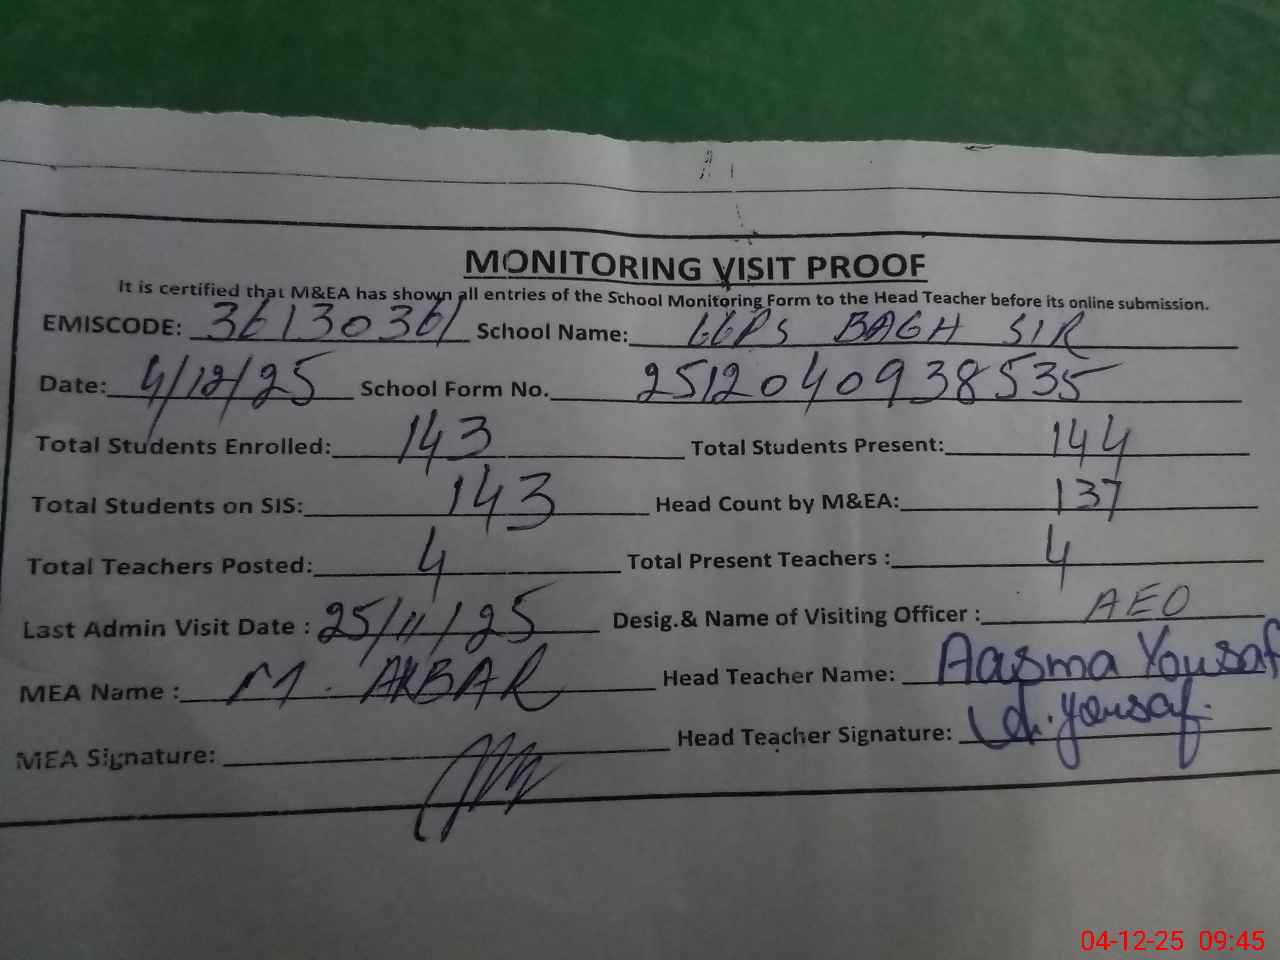 MONITORING VISIT PROOF
It is certified that M&EA has shown all entries of the School Monitoring Form to the Head Teacher before its online submission.
EMISCODE: 36130361 School Name: GGPS BAGH SIR
Date: 4/12/25 School Form No. 2512040938535
Total Students Enrolled: 143 Total Students Present: 144
Total Students on SIS: 143 Head Count by M&EA: 137
Total Teachers Posted: 4 Total Present Teachers : 4
Last Admin Visit Date : 25/11/25 Desig.& Name of Visiting Officer : AEO
MEA Name : M. AKBAR Head Teacher Name: Aasma Yousaf
MEA Signature: Head Teacher Signature: Yousaf.
04-12-25 09:45